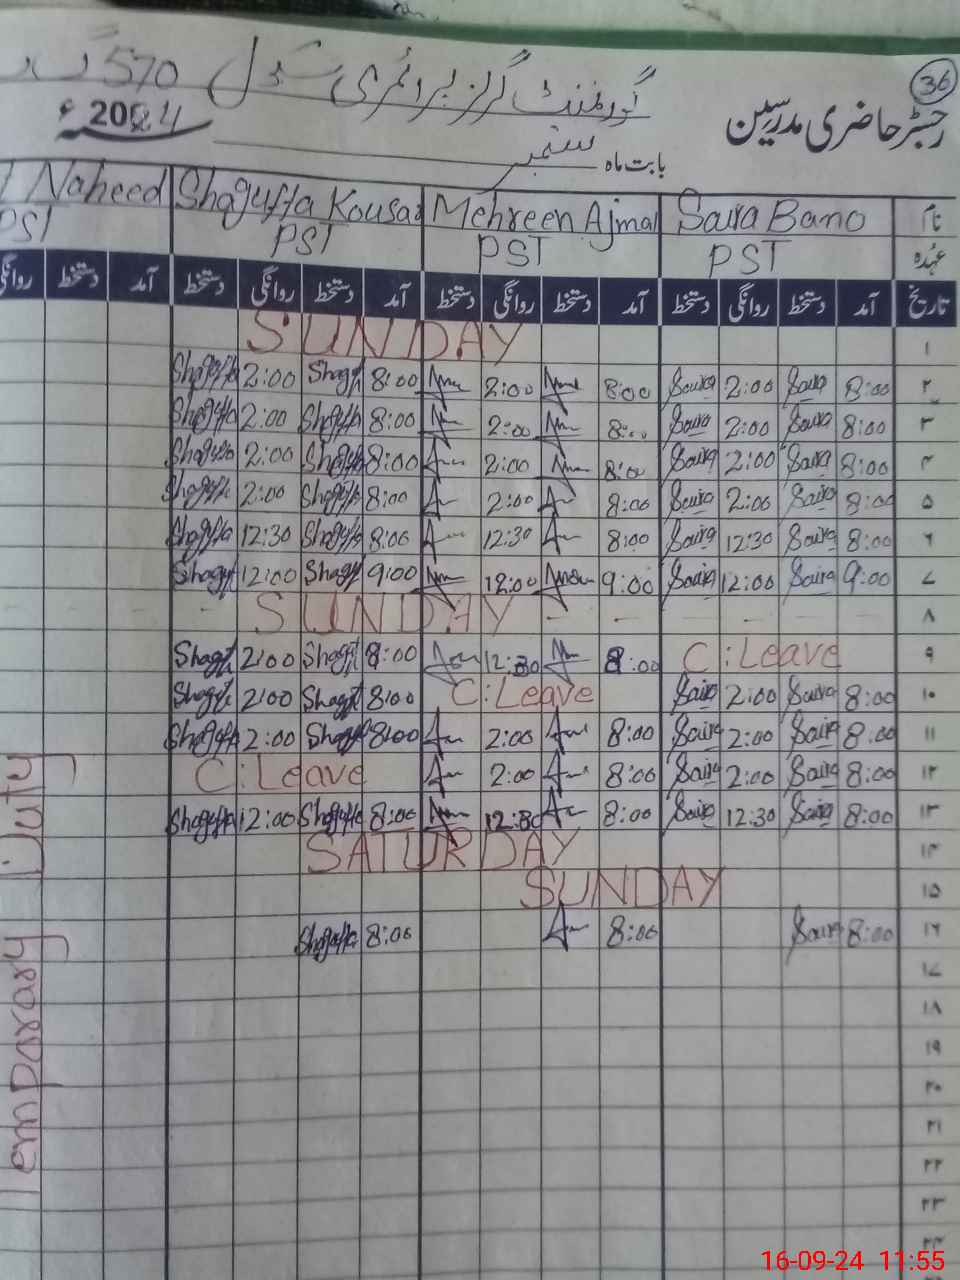 36
رجسٹر حاضری مدرسین
گورنمنٹ گرلز پرائمری سکول 570 گ ب
بابت ماہ ستمبر 2024ء
نام Saira Bano Mehreen Ajmal Shagufta Kousar Naheed
عہدہ PST PST PST PST
تاریخ آمد دستخط روانگی دستخط آمد دستخط روانگی دستخط آمد دستخط روانگی دستخط آمد دستخط روانگی
۱ SUNDAY
۲ 8:00 Saira 2:00 Saira 8:00 2:00 8:00 Shagufta 2:00 Shagufta
۳ 8:00 Saira 2:00 Saira 8:00 2:00 8:00 Shagufta 2:00 Shagufta
۴ 8:00 Saira 2:00 Saira 8:00 2:00 8:00 Shagufta 2:00 Shagufta
۵ 8:00 Saira 2:00 Saira 8:00 2:00 8:00 Shagufta 2:00 Shagufta
۶ 8:00 Saira 12:30 Saira 8:00 12:30 8:00 Shagufta 12:30 Shagufta
۷ 9:00 Saira 12:00 Saira 9:00 12:00 9:00 Shaguf 12:00 Shaguf
۸ SUNDAY
۹ C:Leave 8:00 12:30 8:00 Shagufta 2:00 Shagufta
۱۰ 8:00 Saira 2:00 Saira C:Leave 8:00 Shagufta 2:00 Shagufta
۱۱ 8:00 Saira 2:00 Saira 8:00 2:00 8:00 Shagufta 2:00 Shagufta
۱۲ 8:00 Saira 2:00 Saira 8:00 2:00 C:Leave
۱۳ 8:00 Saira 12:30 Saira 8:00 12:30 8:00 Shagufta 12:00 Shagufta
۱۴ SATURDAY
۱۵ SUNDAY
۱۶ 8:00 Saira 8:00 8:00 Shagufta
۱۷
۱۸
۱۹
۲۰
۲۱
۲۲
۲۳
۲۴
Temparary Duty
16-09-24 11:55